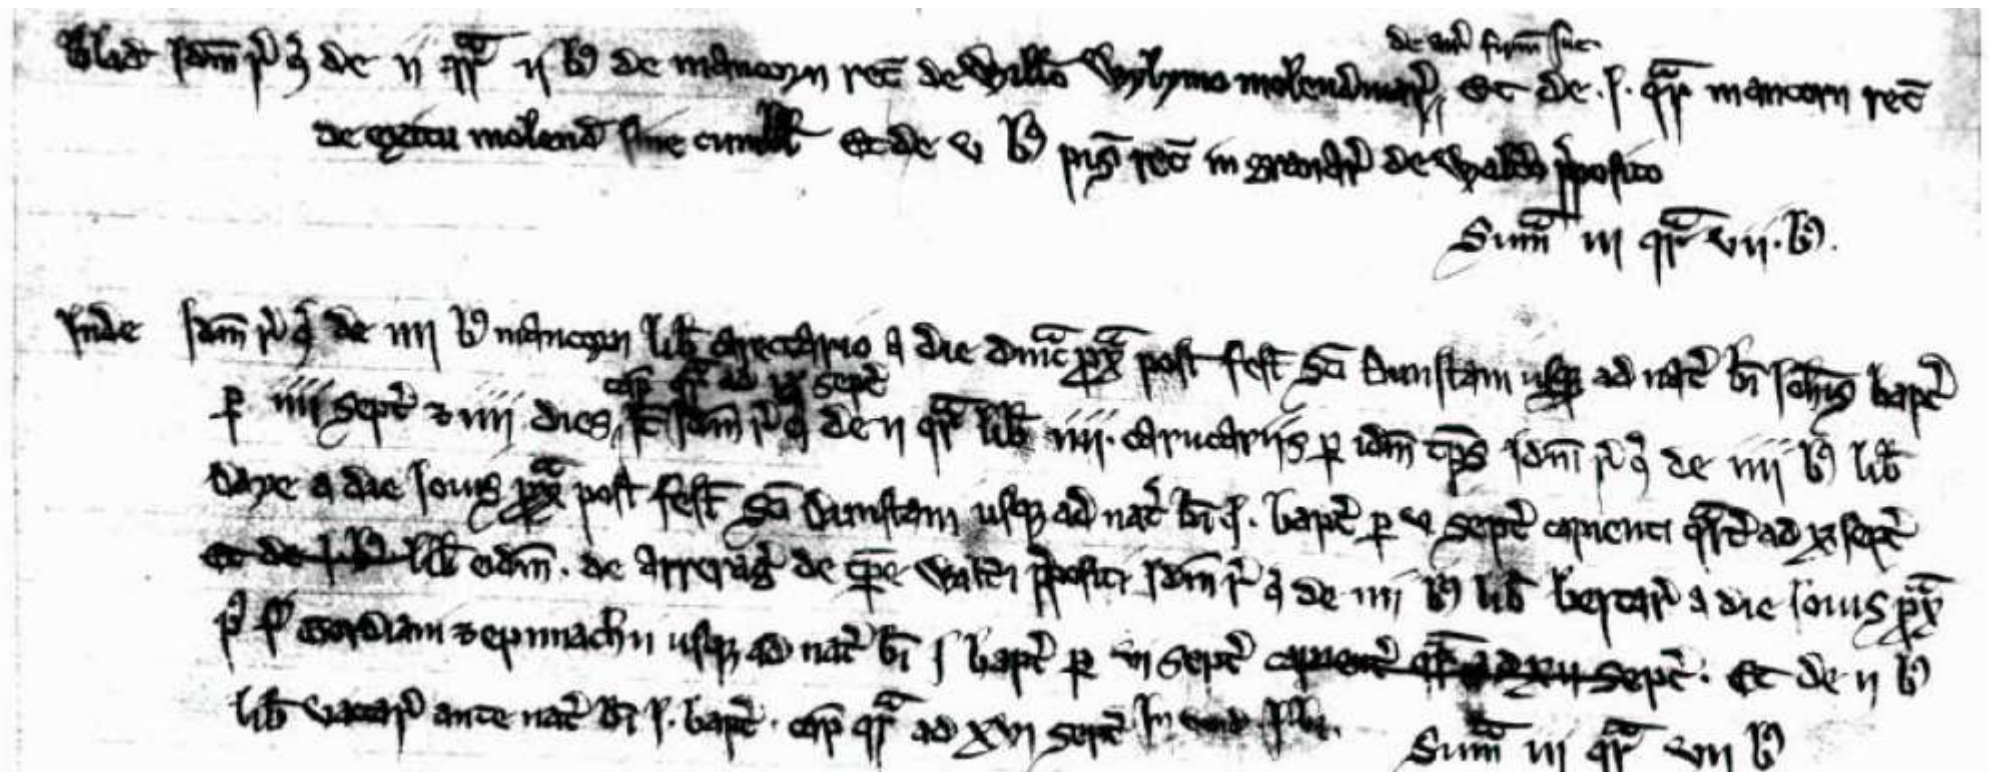 de anno firme sue
Blad Idm r q de ii qr ii b de mancorn rec de Willo Wylymo molendinar Et de i qr mancorn rec
de exitu molend sine cumull Et de v b pis rec in granar de Waltero pposito
Sum iii qr vii b
Inde Idm r q de iiii b mancorn lib carectario a die dnica px post fest sci Dunstani usq ad nat bi Iohis bapt
cap qr ad ix sept
p iiii sept & iiii dies Et Idm r q de ii qr lib iiii carucariis p idm tps Idm r q de iiii b lib
daye a die Iouis px post fest sci Dunstani usq ad nat bi I bapt p v sept capienti qrt ad x sept
Et de i b lib eidm de arrerag de tpe Walteri ppositi Idm r q de iiii b lib bercar a die Iouis px
p f Gordiani & epimachii usq ad nat bi I bapt p vi sept capient qr ad xii sept Et de ii b
lib vaccar ante nat bi I bapt cap qr ad xvi sept
Sum iii qr vii b